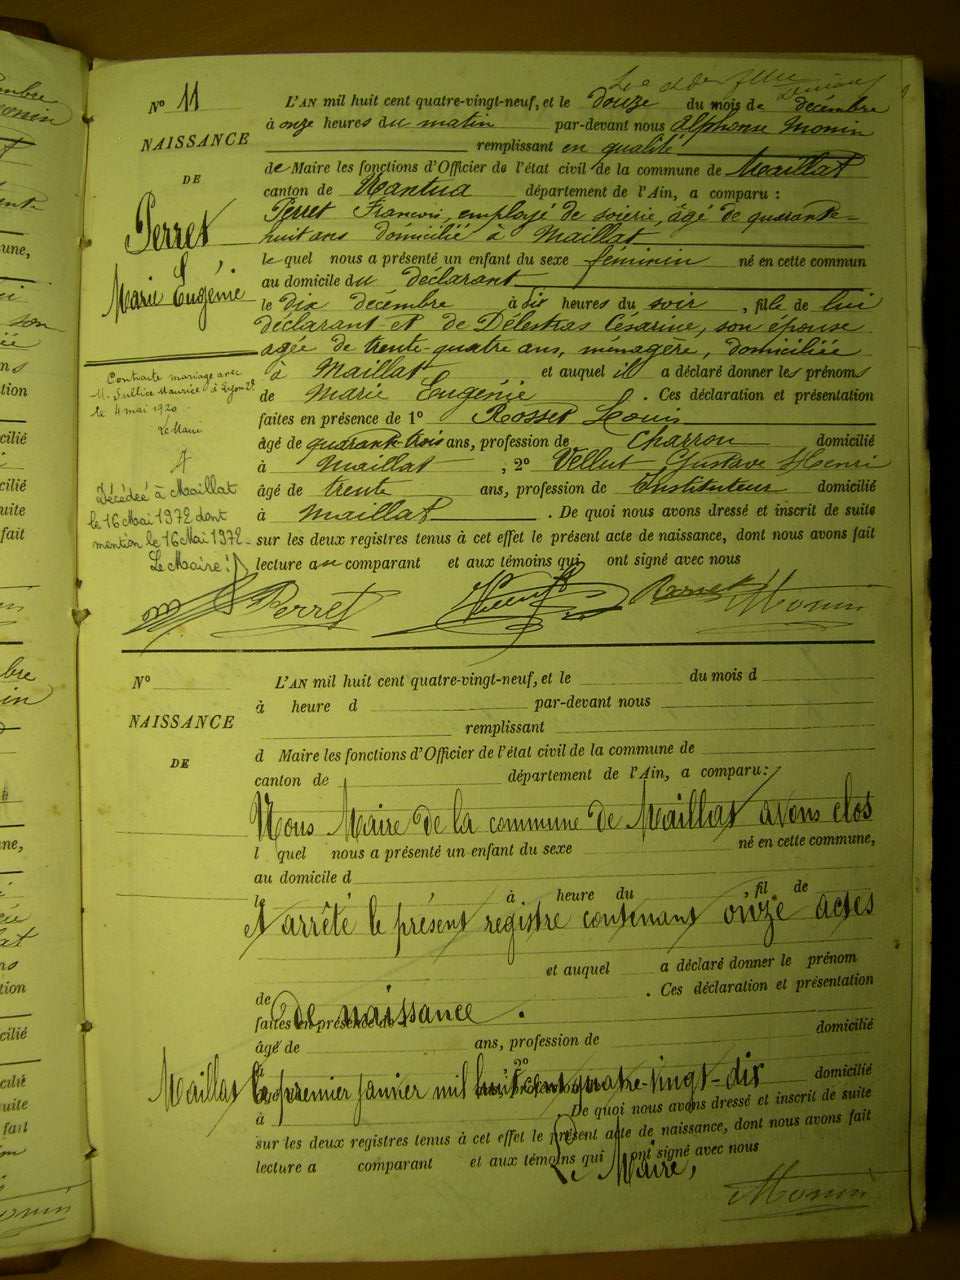 N° 11
NAISSANCE
DE
Perret
Marie Eugénie
Contracté mariage avec
M. Maurice à Lyon 2e
le 4 mai 1920
Le Maire
Décédée à Maillat
le 16 Mai 1972 dont
mention le 16 Mai 1972
Le Maire :
L'AN mil huit cent quatre-vingt-neuf, et le douze du mois de décembre
à onze heures du matin par-devant nous Alphonse Monin
remplissant en qualité
de Maire les fonctions d'Officier de l'état civil de la commune de Maillat
canton de Nantua département de l'Ain, a comparu :
Perret François, employé de soierie, âgé de quarante-
huit ans domicilié à Maillat
lequel nous a présenté un enfant du sexe féminin né en cette commun
au domicile du déclarant
le dix décembre à dix heures du soir, fille de lui
déclarant et de Délestras Césarine, son épouse
agée de trente-quatre ans, ménagère, domiciliée
à Maillat et auquel il a déclaré donner les prénoms
de Marie Eugénie . Ces déclaration et présentation
faites en présence de 1° Rosset Louis
âgé de quarante-trois ans, profession de charron domicilié
à Maillat , 2° Vellut Gustave Henri
âgé de trente ans, profession de Instituteur domicilié
à Maillat . De quoi nous avons dressé et inscrit de suite
sur les deux registres tenus à cet effet le présent acte de naissance, dont nous avons fait
lecture au comparant et aux témoins qui ont signé avec nous
Perret Rosset Monin
N°
NAISSANCE
DE
L'AN mil huit cent quatre-vingt-neuf, et le du mois d
à heure d par-devant nous
remplissant
d Maire les fonctions d'Officier de l'état civil de la commune de
canton de département de l'Ain, a comparu :
Nous Maire de la commune de Maillat avons clos
l quel nous a présenté un enfant du sexe né en cette commune,
au domicile d
l à heure du fil de
et arrêté le présent registre contenant onze actes
et auquel a déclaré donner le prénom
de . Ces déclaration et présentation
de naissance .
faites en présence de
âgé de ans, profession de domicilié
à 2°
Maillat le premier janvier mil huit cent quatre-vingt-dix
domicilié
à . De quoi nous avons dressé et inscrit de suite
sur les deux registres tenus à cet effet le présent acte de naissance, dont nous avons fait
lecture a comparant et aux témoins qui ont signé avec nous
Le Maire,
Monin